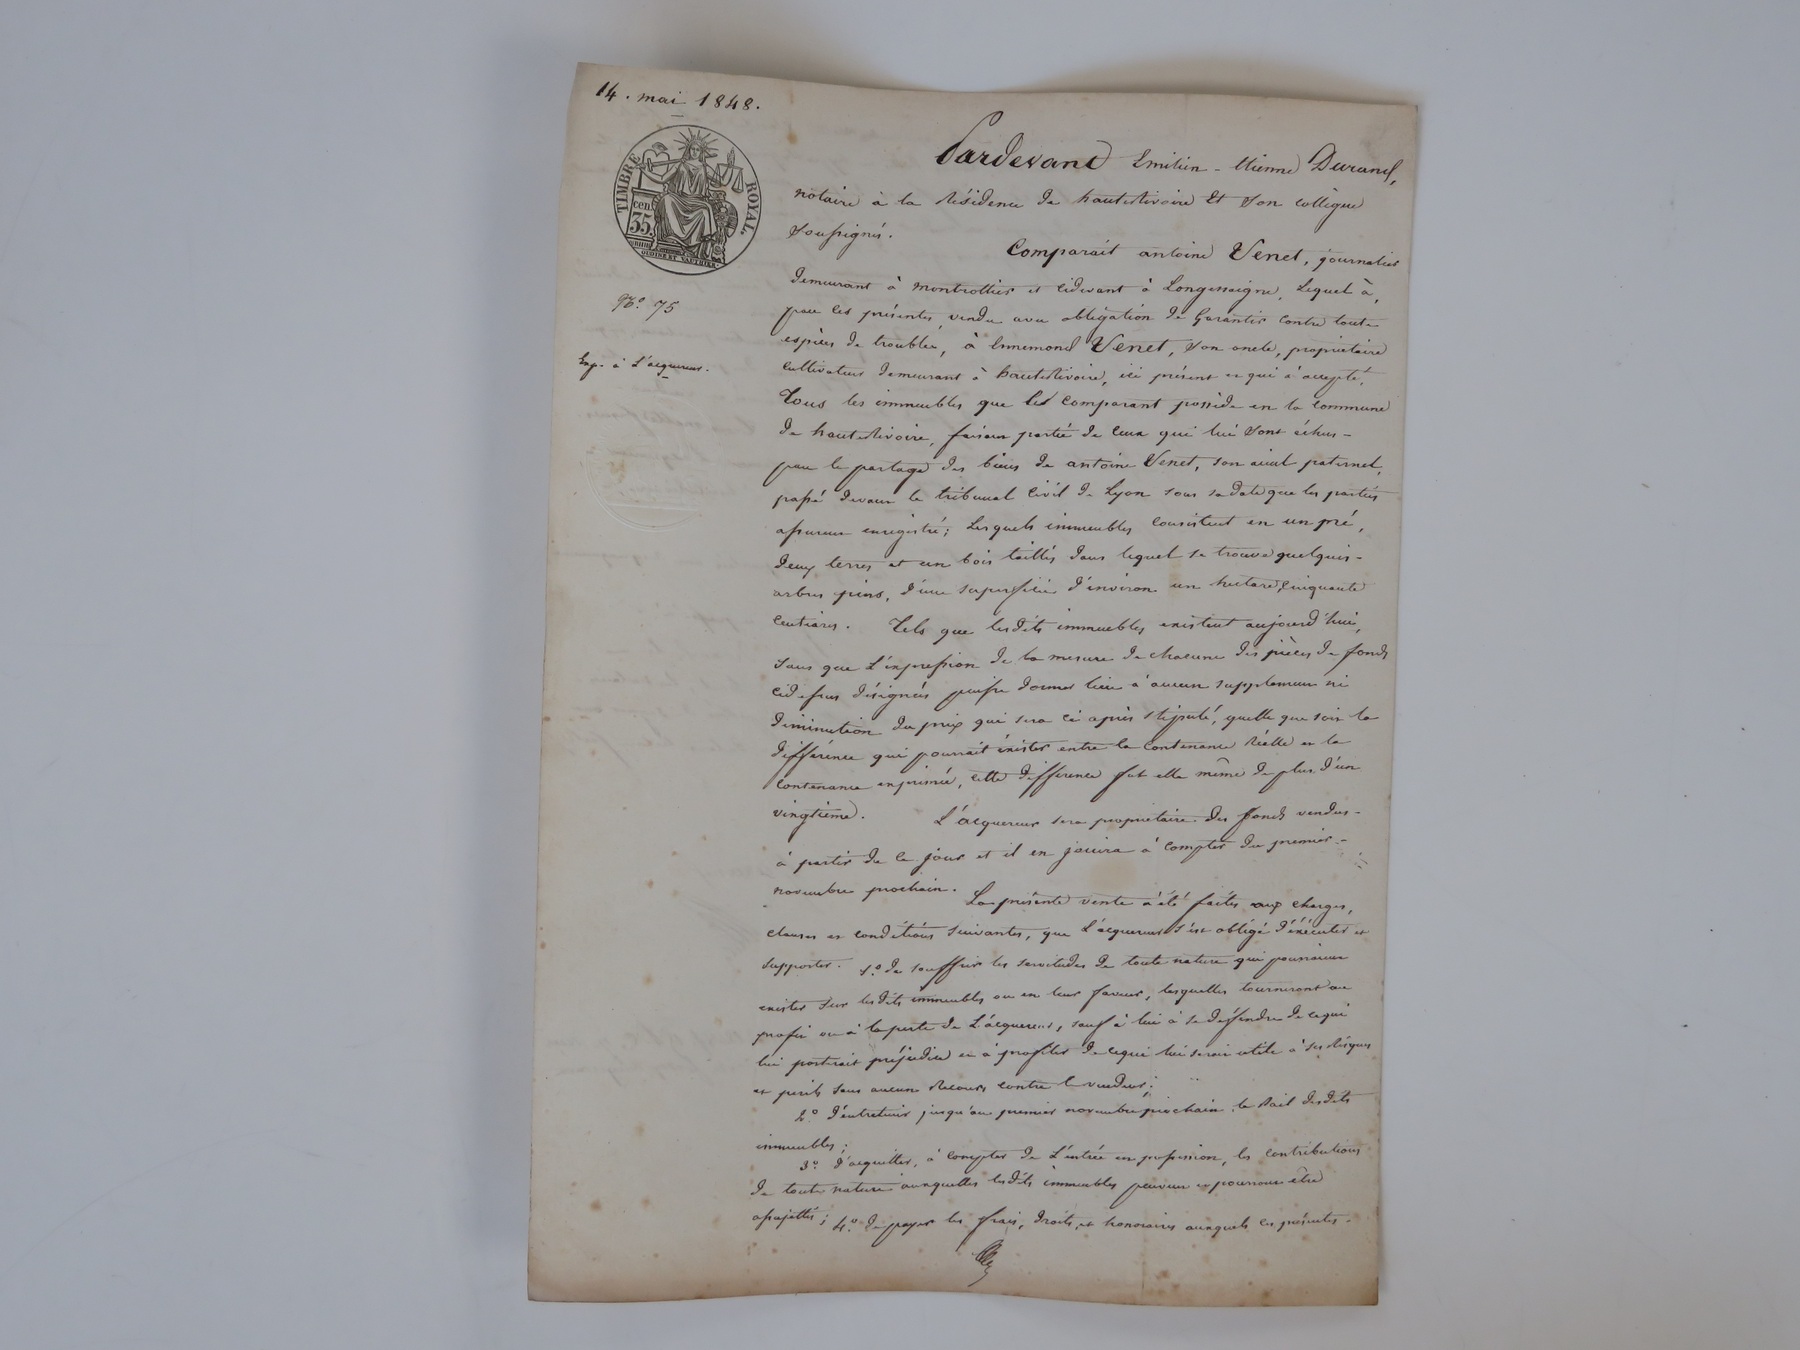 14. mai 1848.
TIMBRE ROYAL.
cen.
35.
OUDINE ET VAUTHIER
N.o 75
Exp. à L'acquereur.
Pardevant Emilien - Etienne Durand,
notaire à la Résidence de hauterivoire Et Son collègue
Soussignés.
Comparait antoine Venet, journalier
demeurant à montrottier et cidevant à Longessaigne, Lequel à,
par les présentes, vendu avec obligation de Garantir contre toute
espèces de troubles, à Ennemond Venet, Son oncle, propriétaire
cultivateur demeurant à hauterivoire, ici présent et qui à accepté,
Tous les immeubles que le comparant possède en la commune
de hauterivoire, faisant partie de ceux qui lui Sont échus -
par le partage des biens de antoine Venet, son aieul paternel,
passé devant le tribunal civil de Lyon sous sa date que les parties
assurent enregistré; Lesquels immeubles consistent en un pré,
deux terres et un bois taillis dans lequel se trouve quelques -
arbres pins, d'une superficie d'environ un hectare, cinquante
centiares. Tels que lesdits immeubles existent aujourd'hui,
sans que L'expression de la mesure de chacune des pièces de fonds
cidessus désignées puisse donner lieu à aucun supplement ni
diminution du prix qui sera ci après stipulé, quelle que soit la
différence qui pourrait éxister entre la contenance Réelle et la
contenance exprimée, cette différence fut elle même de plus d'un
vingtième. L'acquereur sera propriétaire des fonds vendus -
à partir de ce jour et il en jouira à compter du premier -
novembre prochain.
La présente vente à été faites aux charges,
clauses et conditions Suivantes, que L'acquereur s'est obligé d'éxécuter et
supporter. 1.o de souffrir les servitudes de toute nature qui pourraient
exister sur lesdits immeubles ou en leur faveur, lesquelles tourneront au
profit ou à la perte de L'acquereur, sauf à lui à se deffendre de cequi
lui porterait préjudice et à profiter de cequi lui serait utile à ses Risques
et perils sans aucun Recours contre le vendeur;
2.o d'entretenir jusqu'au premier novembre prochain le Bail desdits
immeubles;
3.o d'acquitter, à compter de L'entrée en possession, les contributions
de toute nature auxquelles lesdits immeubles peuvent et pourront être
assujettis; 4.o de payer les frais, droits, et honoraires auxquels les présentes -